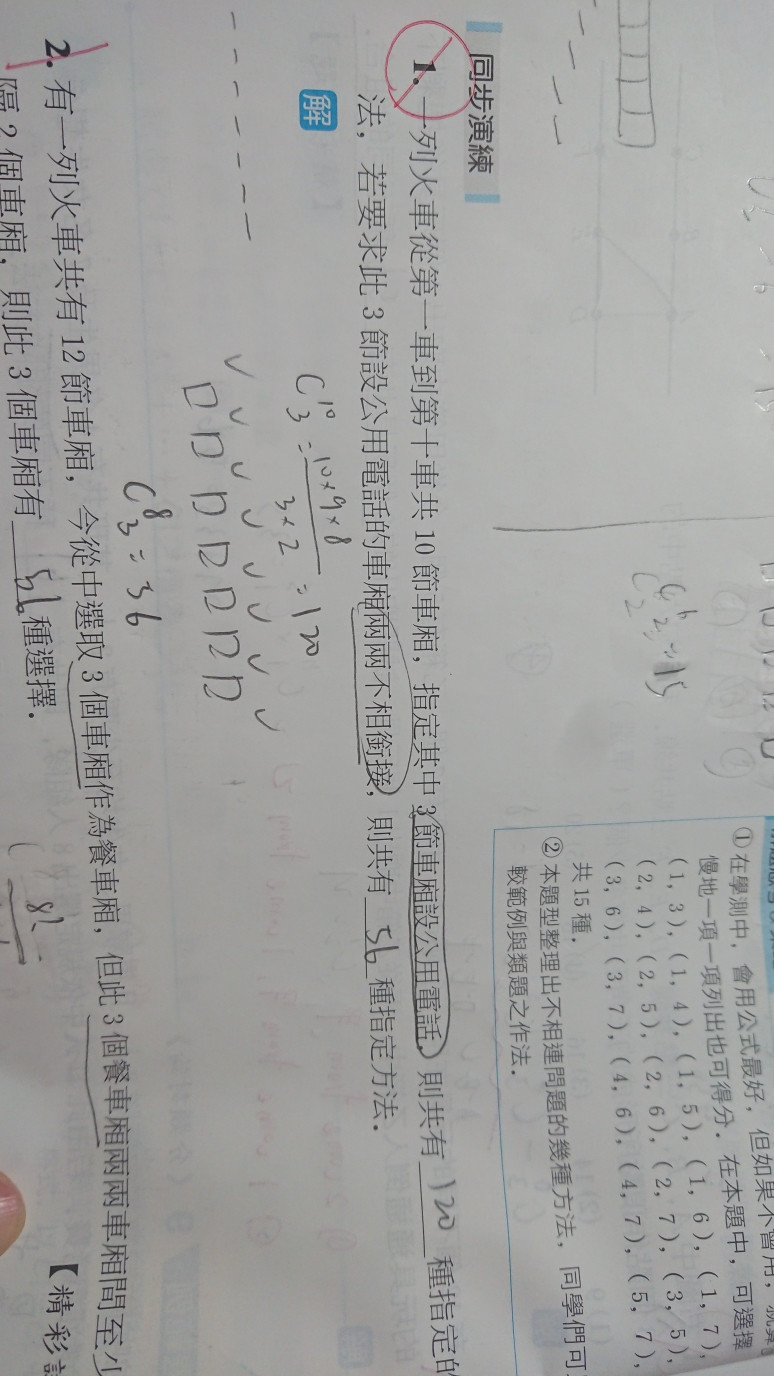 C₂⁶=15
① 在學測中，會用公式最好，但如果不會用，就
慢地一項一項列出也可得分．在本題中，可選擇
(1, 3), (1, 4), (1, 5), (1, 6), (1, 7),
(2, 4), (2, 5), (2, 6), (2, 7), (3, 5),
(3, 6), (3, 7), (4, 6), (4, 7), (5, 7),
共 15 種．
② 本題型整理出不相連問題的幾種方法，同學們可
較範例與類題之作法．
同步演練
1. 一列火車從第一車到第十車共 10 節車廂，指定其中 3 節車廂設公用電話，則共有 120 種指定的
法，若要求此 3 節設公用電話的車廂兩兩不相銜接，則共有 56 種指定方法．
解
C₃¹⁰=10×9×8/3×2=120
C₃⁸=36
2. 有一列火車共有 12 節車廂，今從中選取 3 個車廂作為餐車廂，但此 3 個餐車廂兩兩車廂間至少
隔 2 個車廂，則此 3 個車廂有 56 種選擇．
【精彩
8!